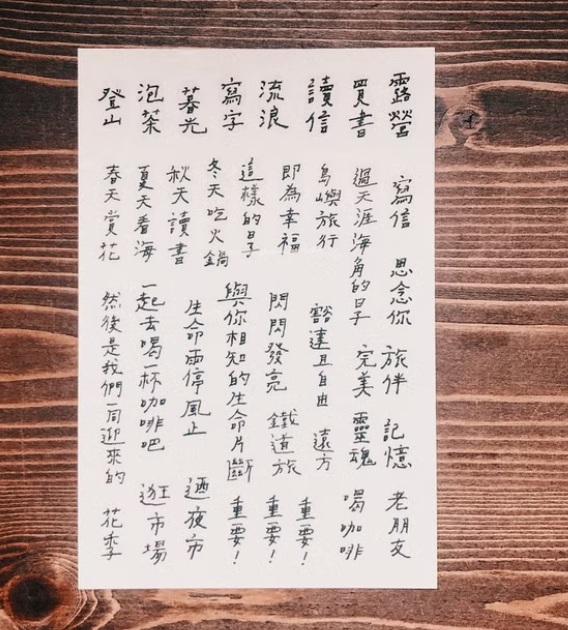 露營 寫信 思念你 旅伴 記憶 老朋友
買書 過天涯海角的日子 完美 靈魂 喝咖啡
讀信 島嶼旅行 豁達且自由 遠方 重要！
流浪 即為幸福 閃閃發亮 鐵道旅 重要！
寫字 這樣的日子 與你相知的生命片斷 重要！
冬天吃火鍋
暮光 秋天讀書 生命雨停風止 迺夜市
泡茶 夏天看海 一起去喝一杯咖啡吧 逛市場
登山 春天賞花 然後是我們一同迎來的 花季